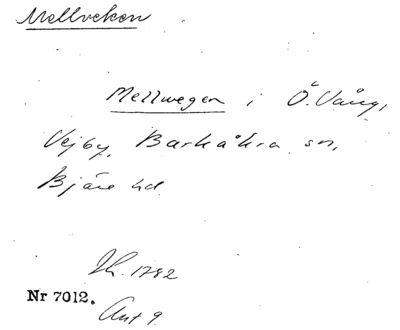 Mellveken
Mellwegen i Ö. Vång,
Vejby, Barkåkra sn,
Bjäre hd
Sk. 1782
Nr 7012.
Akt 9